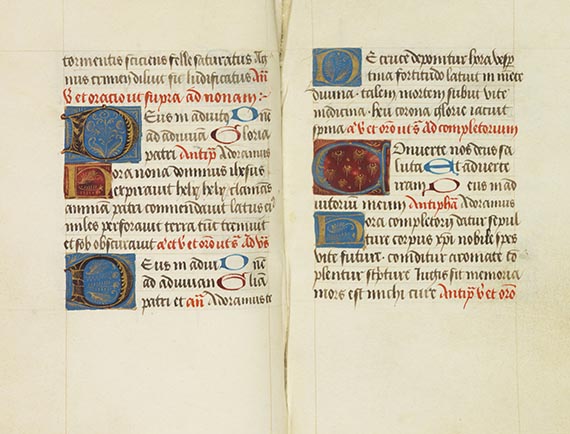 tormentis sciciens felle saturatus Ag
nus crimen diluit sic ludificatus Añ
V et oracio ut supra ad nonam :-
Deus in adiuto One
ad adiuvan Gloria
patri Antip̄ Adoramus
Hora nona dominus ihesus
expiravit hely hely clamās
animam patri commendavit latus ei9
miles perforavit terra tūc tremuit
et sol obscuravit a͠ v et orō ut s̄ ad vs̄
Deus in adiu One
ad adiuvan Glīa
patri et añ Adoramus te
De cruce deponitur hora vesp
tina fortitudo latuit in mēte
divina talem mortem subiit vite
medicina heu corona glorie iacuit
supina a͠ v et orō ut s̄ Ad completorium
Converte nos deus sa
luta Et adverte
iram Deus in ad
iutorium meum Antiphā Adoramus
Hora completorij datur sepul
ture corpus xp̄i nobile spes
vite future conditur aromate cō
plentur scripture Iugis sit memoria
mors est michi cure Antip̄ v̄ et orō